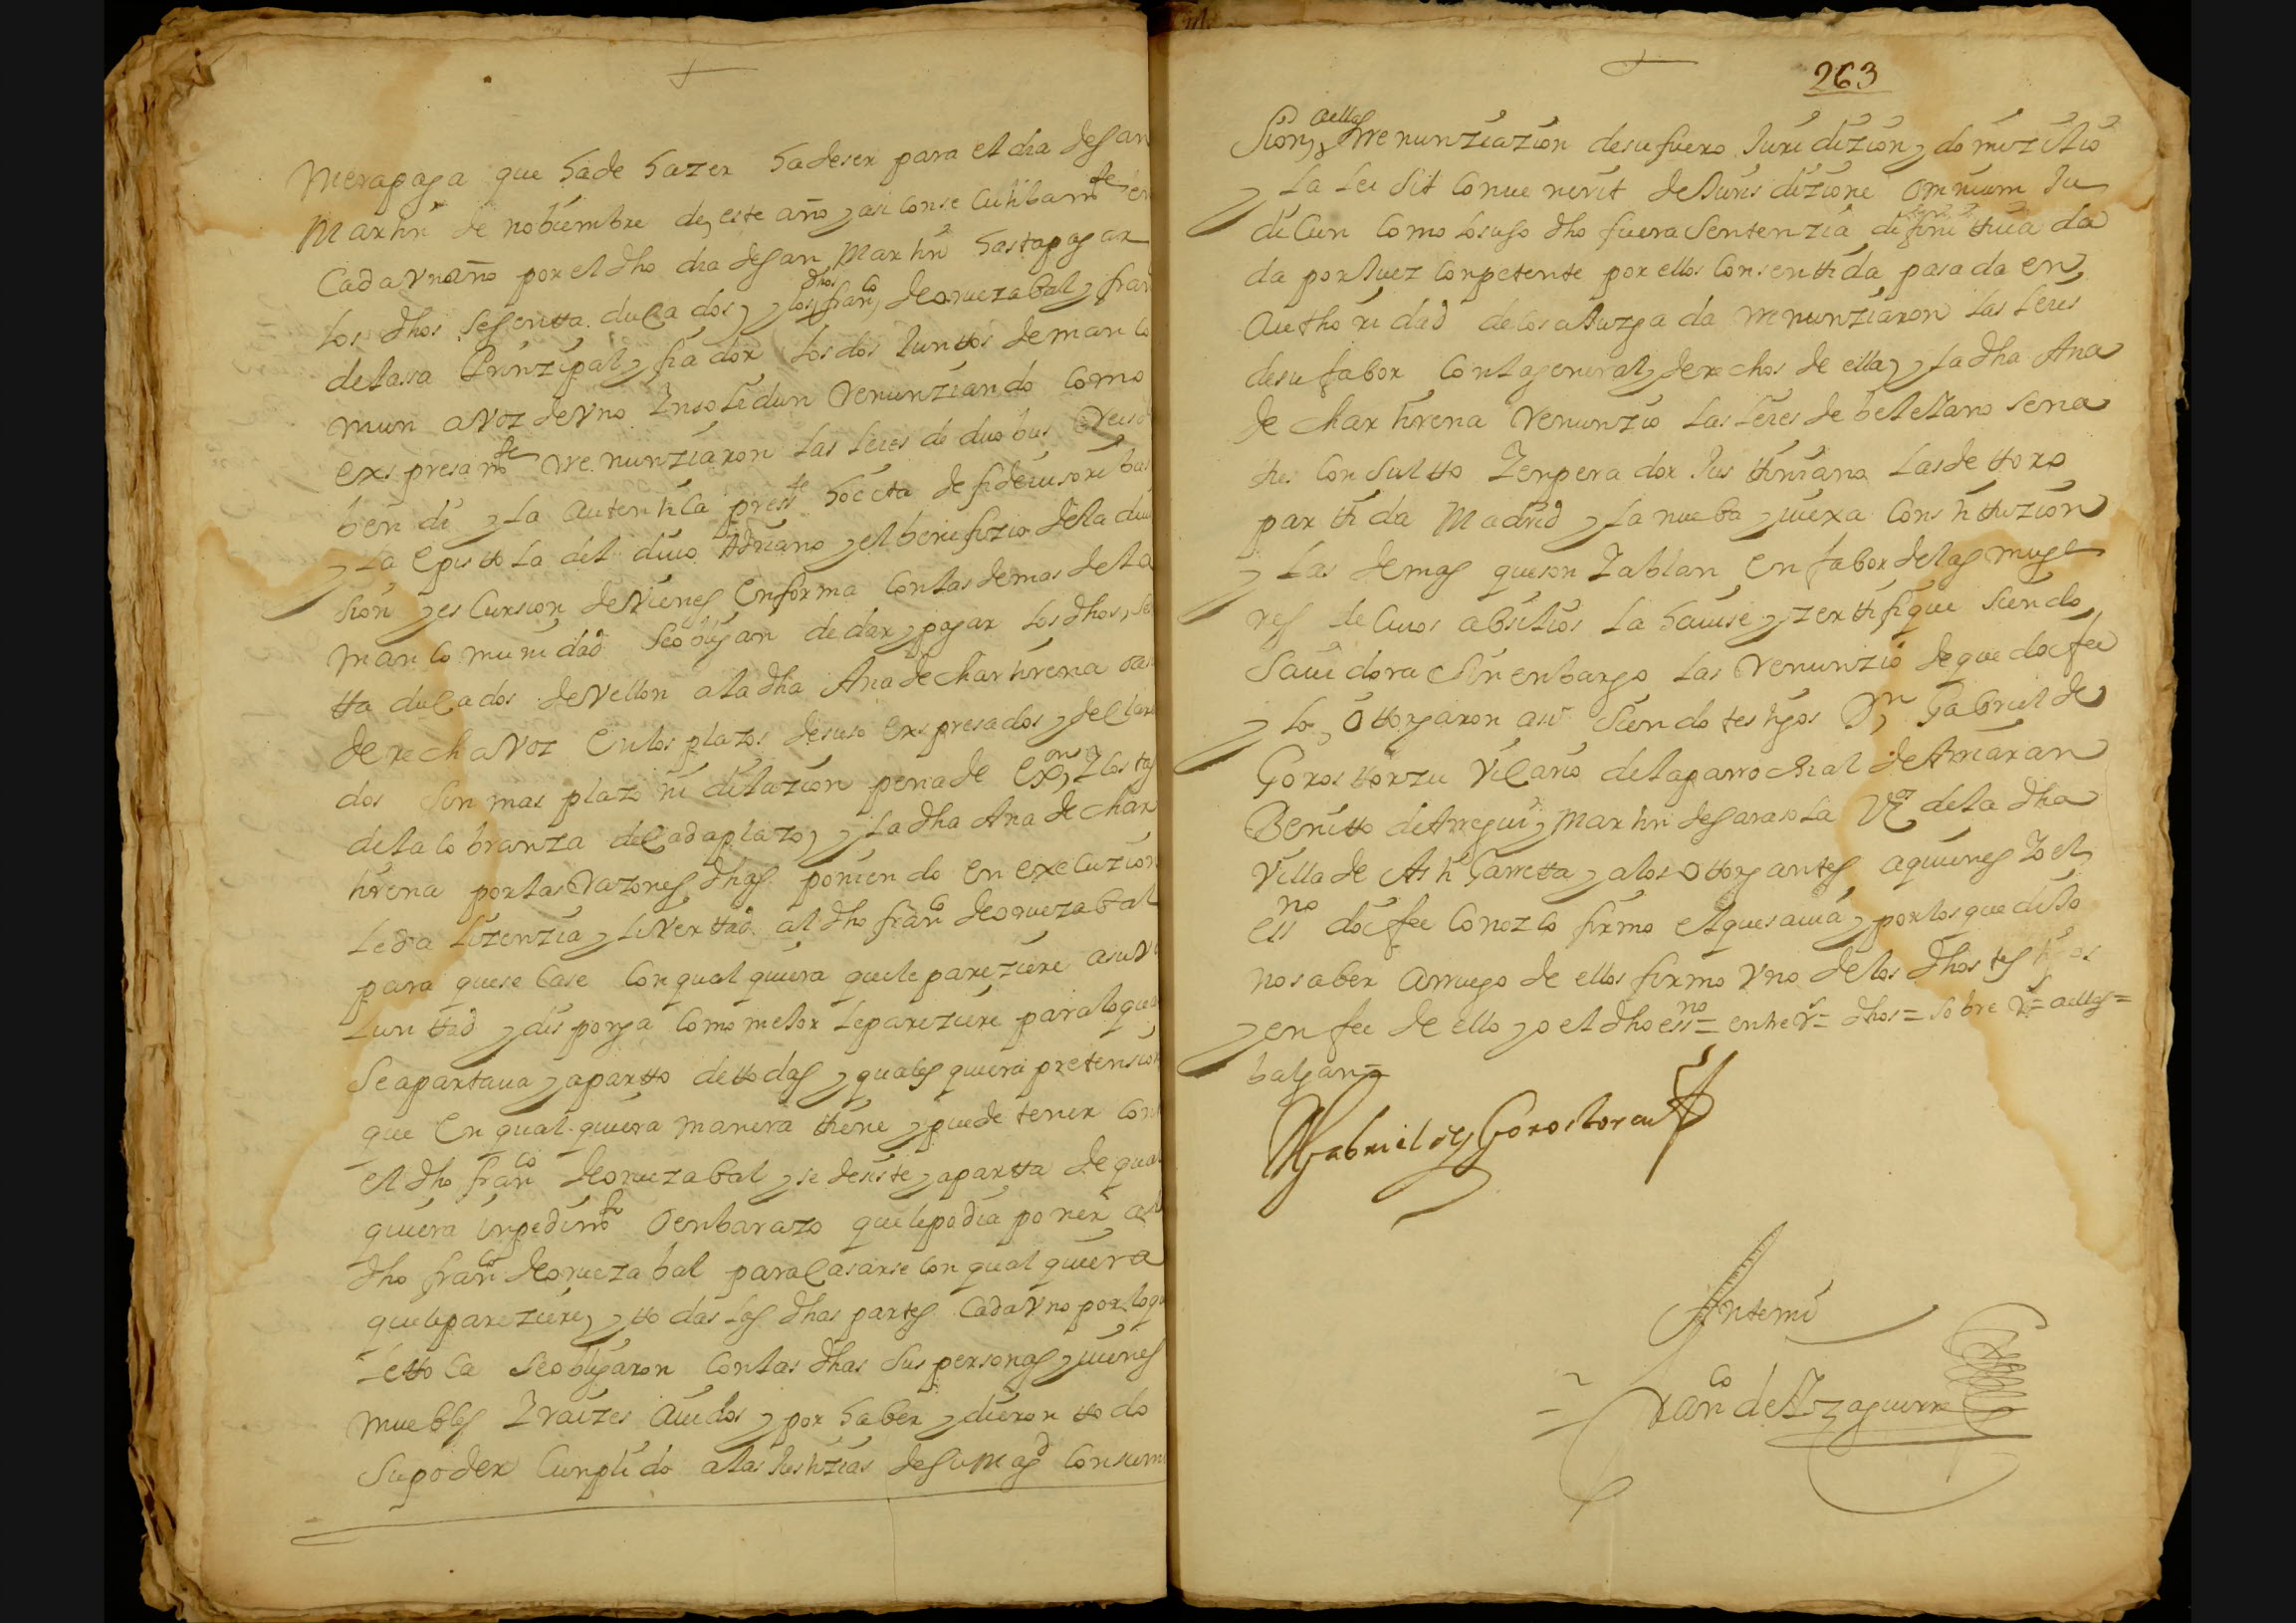 merapaga que hade hazer hadeser para el dia desan
Martin de nobiembre de este año y asi consecutibamte en
Cada vn año por el dho dia desan Martin hasta pagar
los dhos sesentta ducados, y los dhos franco de oruezabal y fran
de lassa Prinzipal y fiador los dos Juntos de manco
mun a voz de vno Insolidun Renunziando como
expresamte rrenunziaron las leies de duobus Reis de
bendi y la autentica presste hocita de fideiusoribus
y la epistola del diuo Adriano y el benefizio dela diui
sion y escursion de vienes en forma con las demas de la
mancomunidad se obligan de dar y pagar los dhos se
tta ducados de vellon a la dha Ana de chartirena o a
derecha voz en los plazos de suso expresados y declara
dos sin mas plazo ni dilazion pena de exon y costas
de la cobranza de cada plazo, y la dha Ana de char
tirena por las Razones dhas poniendo en execuzion
le da lizenzia y livertad al dho franco de oruezabal
para que se case con qual quiera que le pareziere a su vo
luntad y disponga como mejor le pareziere para lo que
se apartaua y apartto de ttodas y quales quiera pretension
que en qual quiera manera tiene y puede tener cont
el dho franco de oruezabal y se desiste y apartta de qual
quiera inpedimto o enbarazo que le podia poner al
dho franco de oruezabal para casarse con qual quiera
que le pareziere, y ttodas las dhas partes Cada vno por lo q
le ttoca se obligaron con las dhas sus personas y uienes
muebles y raizes auidos y por haber y dieron ttodo
su poder cunplido a las Justizias de su magd con sumi
263
sion, aellas y rrenunziazion de su fuero Juridizion y domizilio
y la lei sit conuenerit de Jurisdizione omnium Ju
dicun como lo suso dho fuera sentenzia difinittiua da
da por Juez conpetente por ellos consenttida pasada en
authoridad de cosa Juzgada rrenunziaron las leies
de su fabor con la general, derechos de ella, y la dha Ana
de chartirena renunzio las leies de beleiano sena
tus consultto Zenperador Justtiniano las de ttoro
parttida Madrid y la nueba y uiexa constituzion
y las demas que son y ablan en fabor de las muge
res de cuios absilios la hauise y zerttifique siendo
sauidora sin enbargo las renunzio de que doi fee
y lo ottorgaron asi siendo testigos Dn Gabriel de
Gorosttorzu Vicario de la parrochial de Amaran
Benitto de Arregui y martin de sarasola Vos de la dha
Villa de Astigarretta y a los ottorgantes a quienes yo el
essno doi fee conozco firmo el que sauia y por los que dijo
no saber a rruego de ellos firmo vno de los dhos testigos
y en fee de ello yo el dho essno = entre Rs = dhos = sobre Rs = aellas =
balgan =
Gabriel de Gorostorzu
Antemi
Franco de Yzaguirre